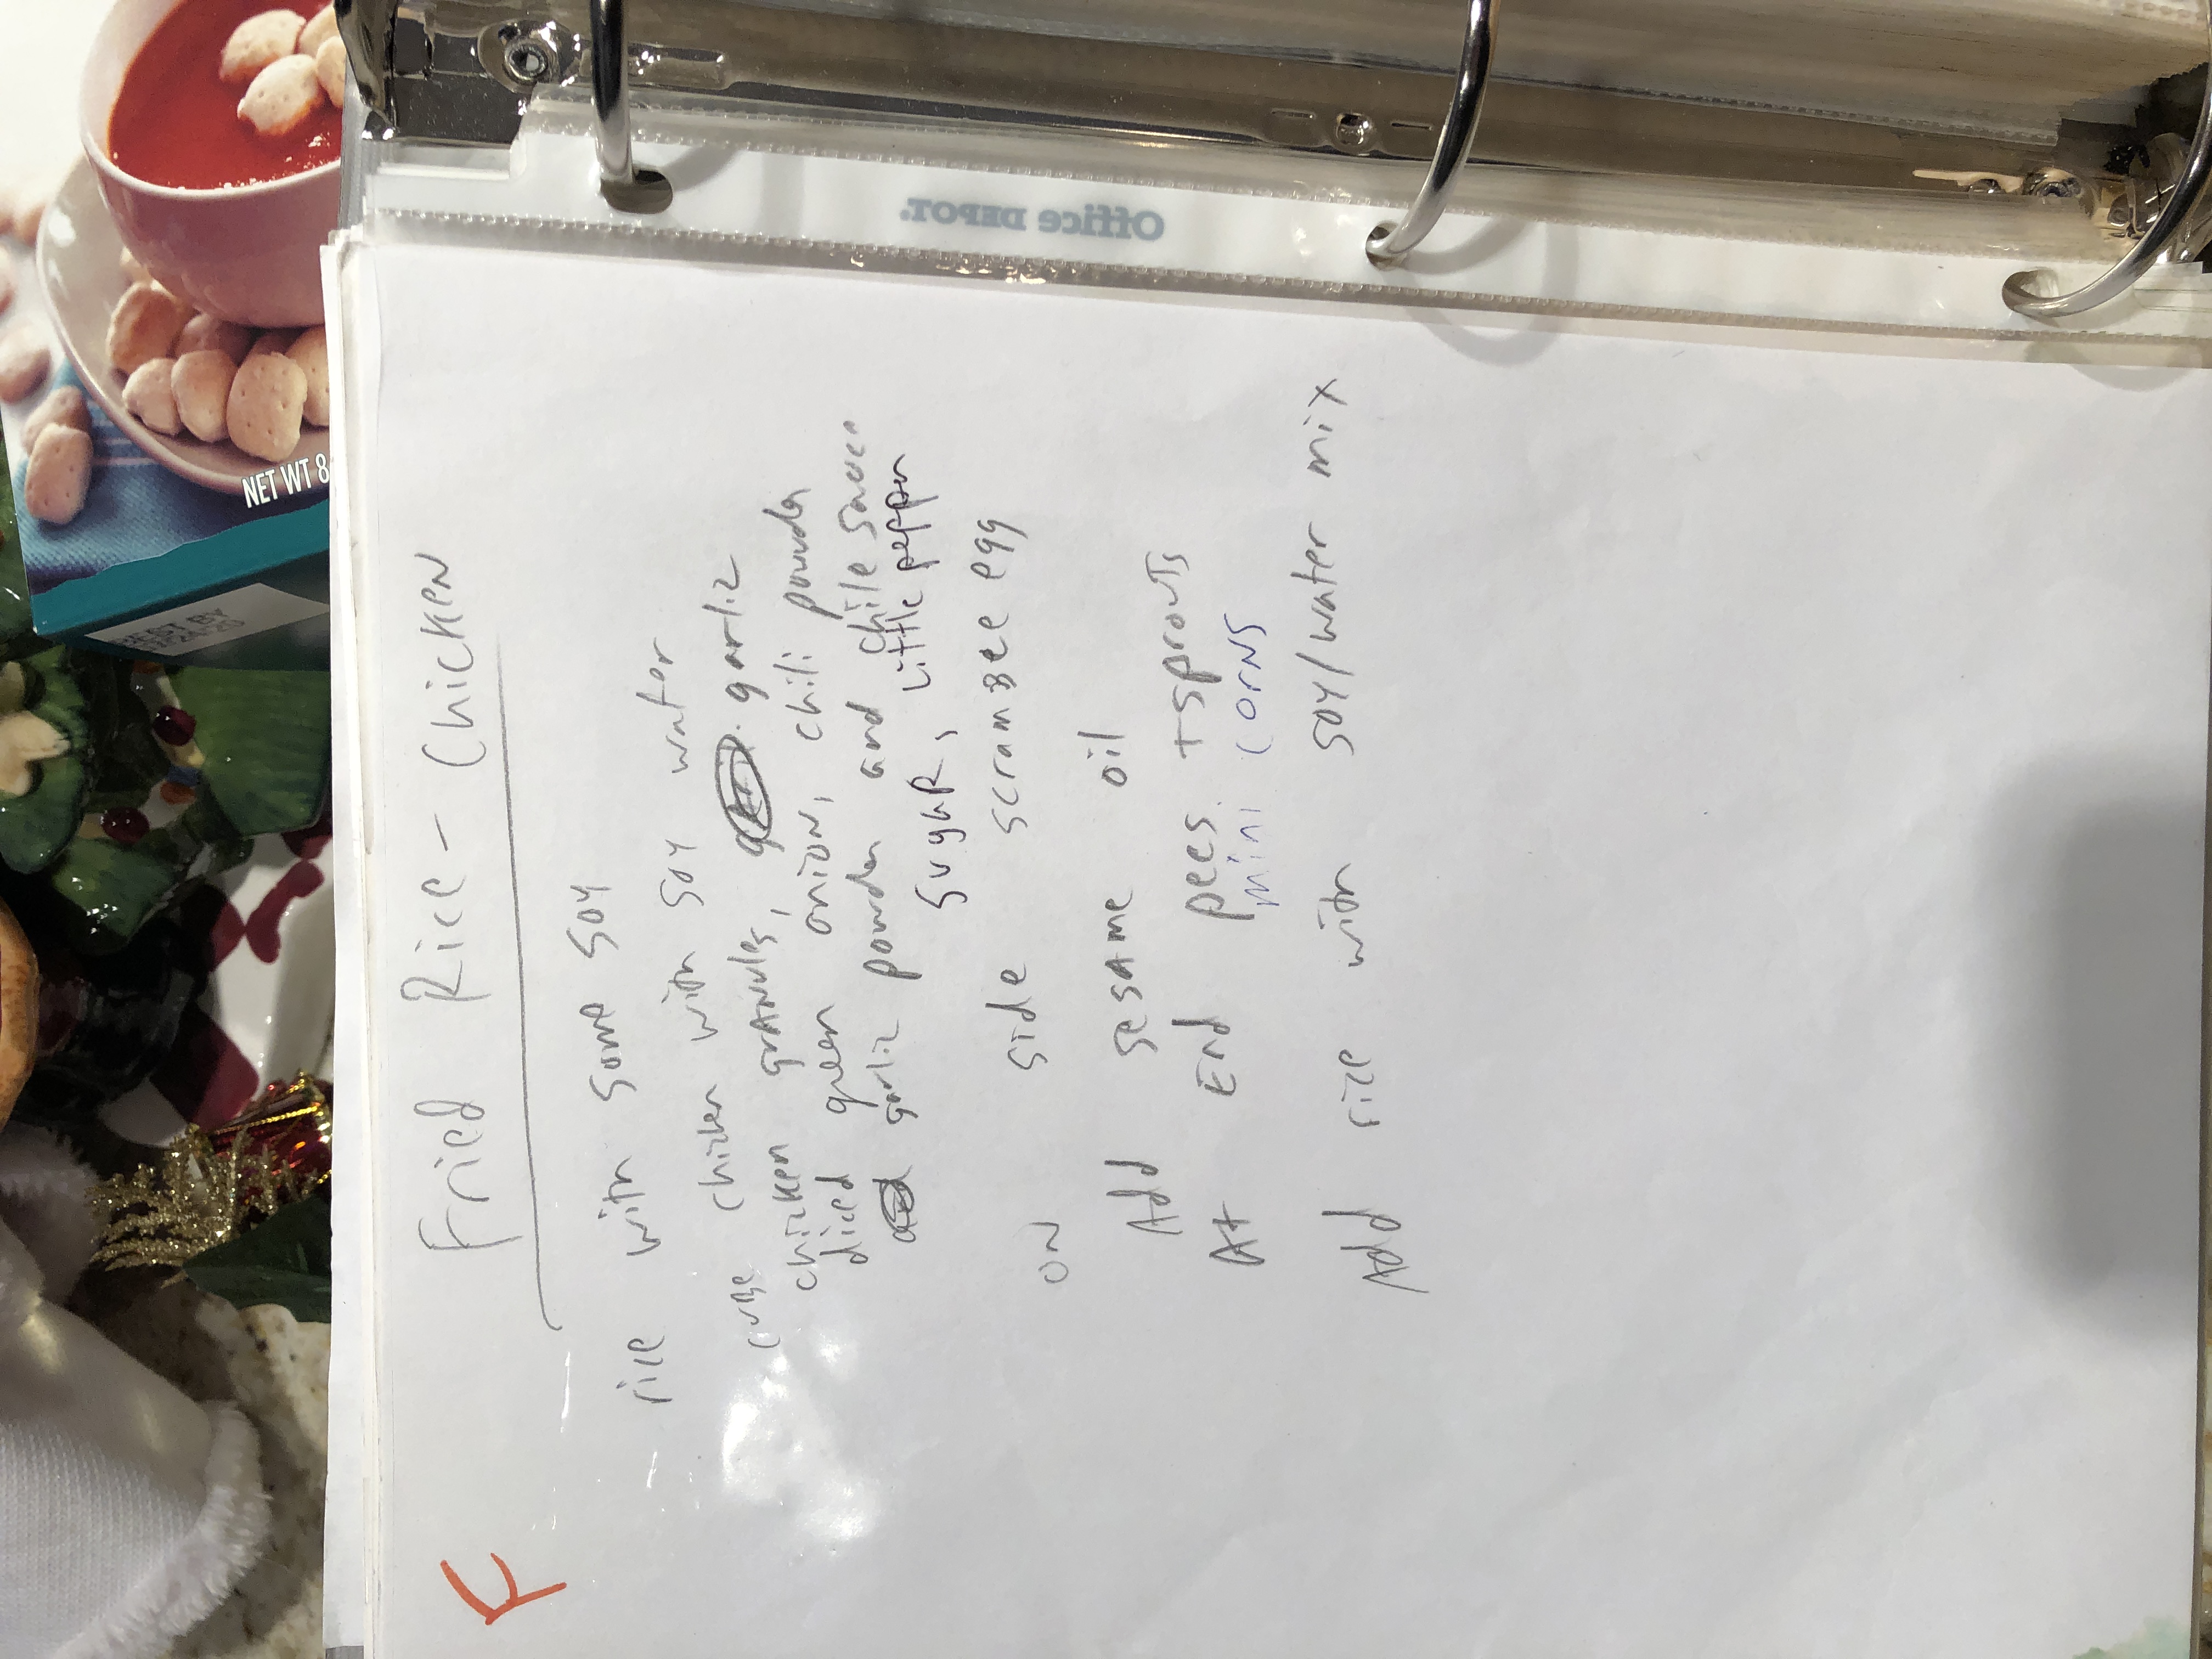 F
Fried Rice - Chicken
rice with some soy
cube chicken with soy water
chicken granules, garlic
diced green onion, chili powder
garlic powder and chile sauce
sugar, Little pepper
on side scramBee egg
Add sesame oil
At End pees + sprouts
mini corns
Add rice with soy/water mix
Office DEPOT.
NET WT 8
BEST BY